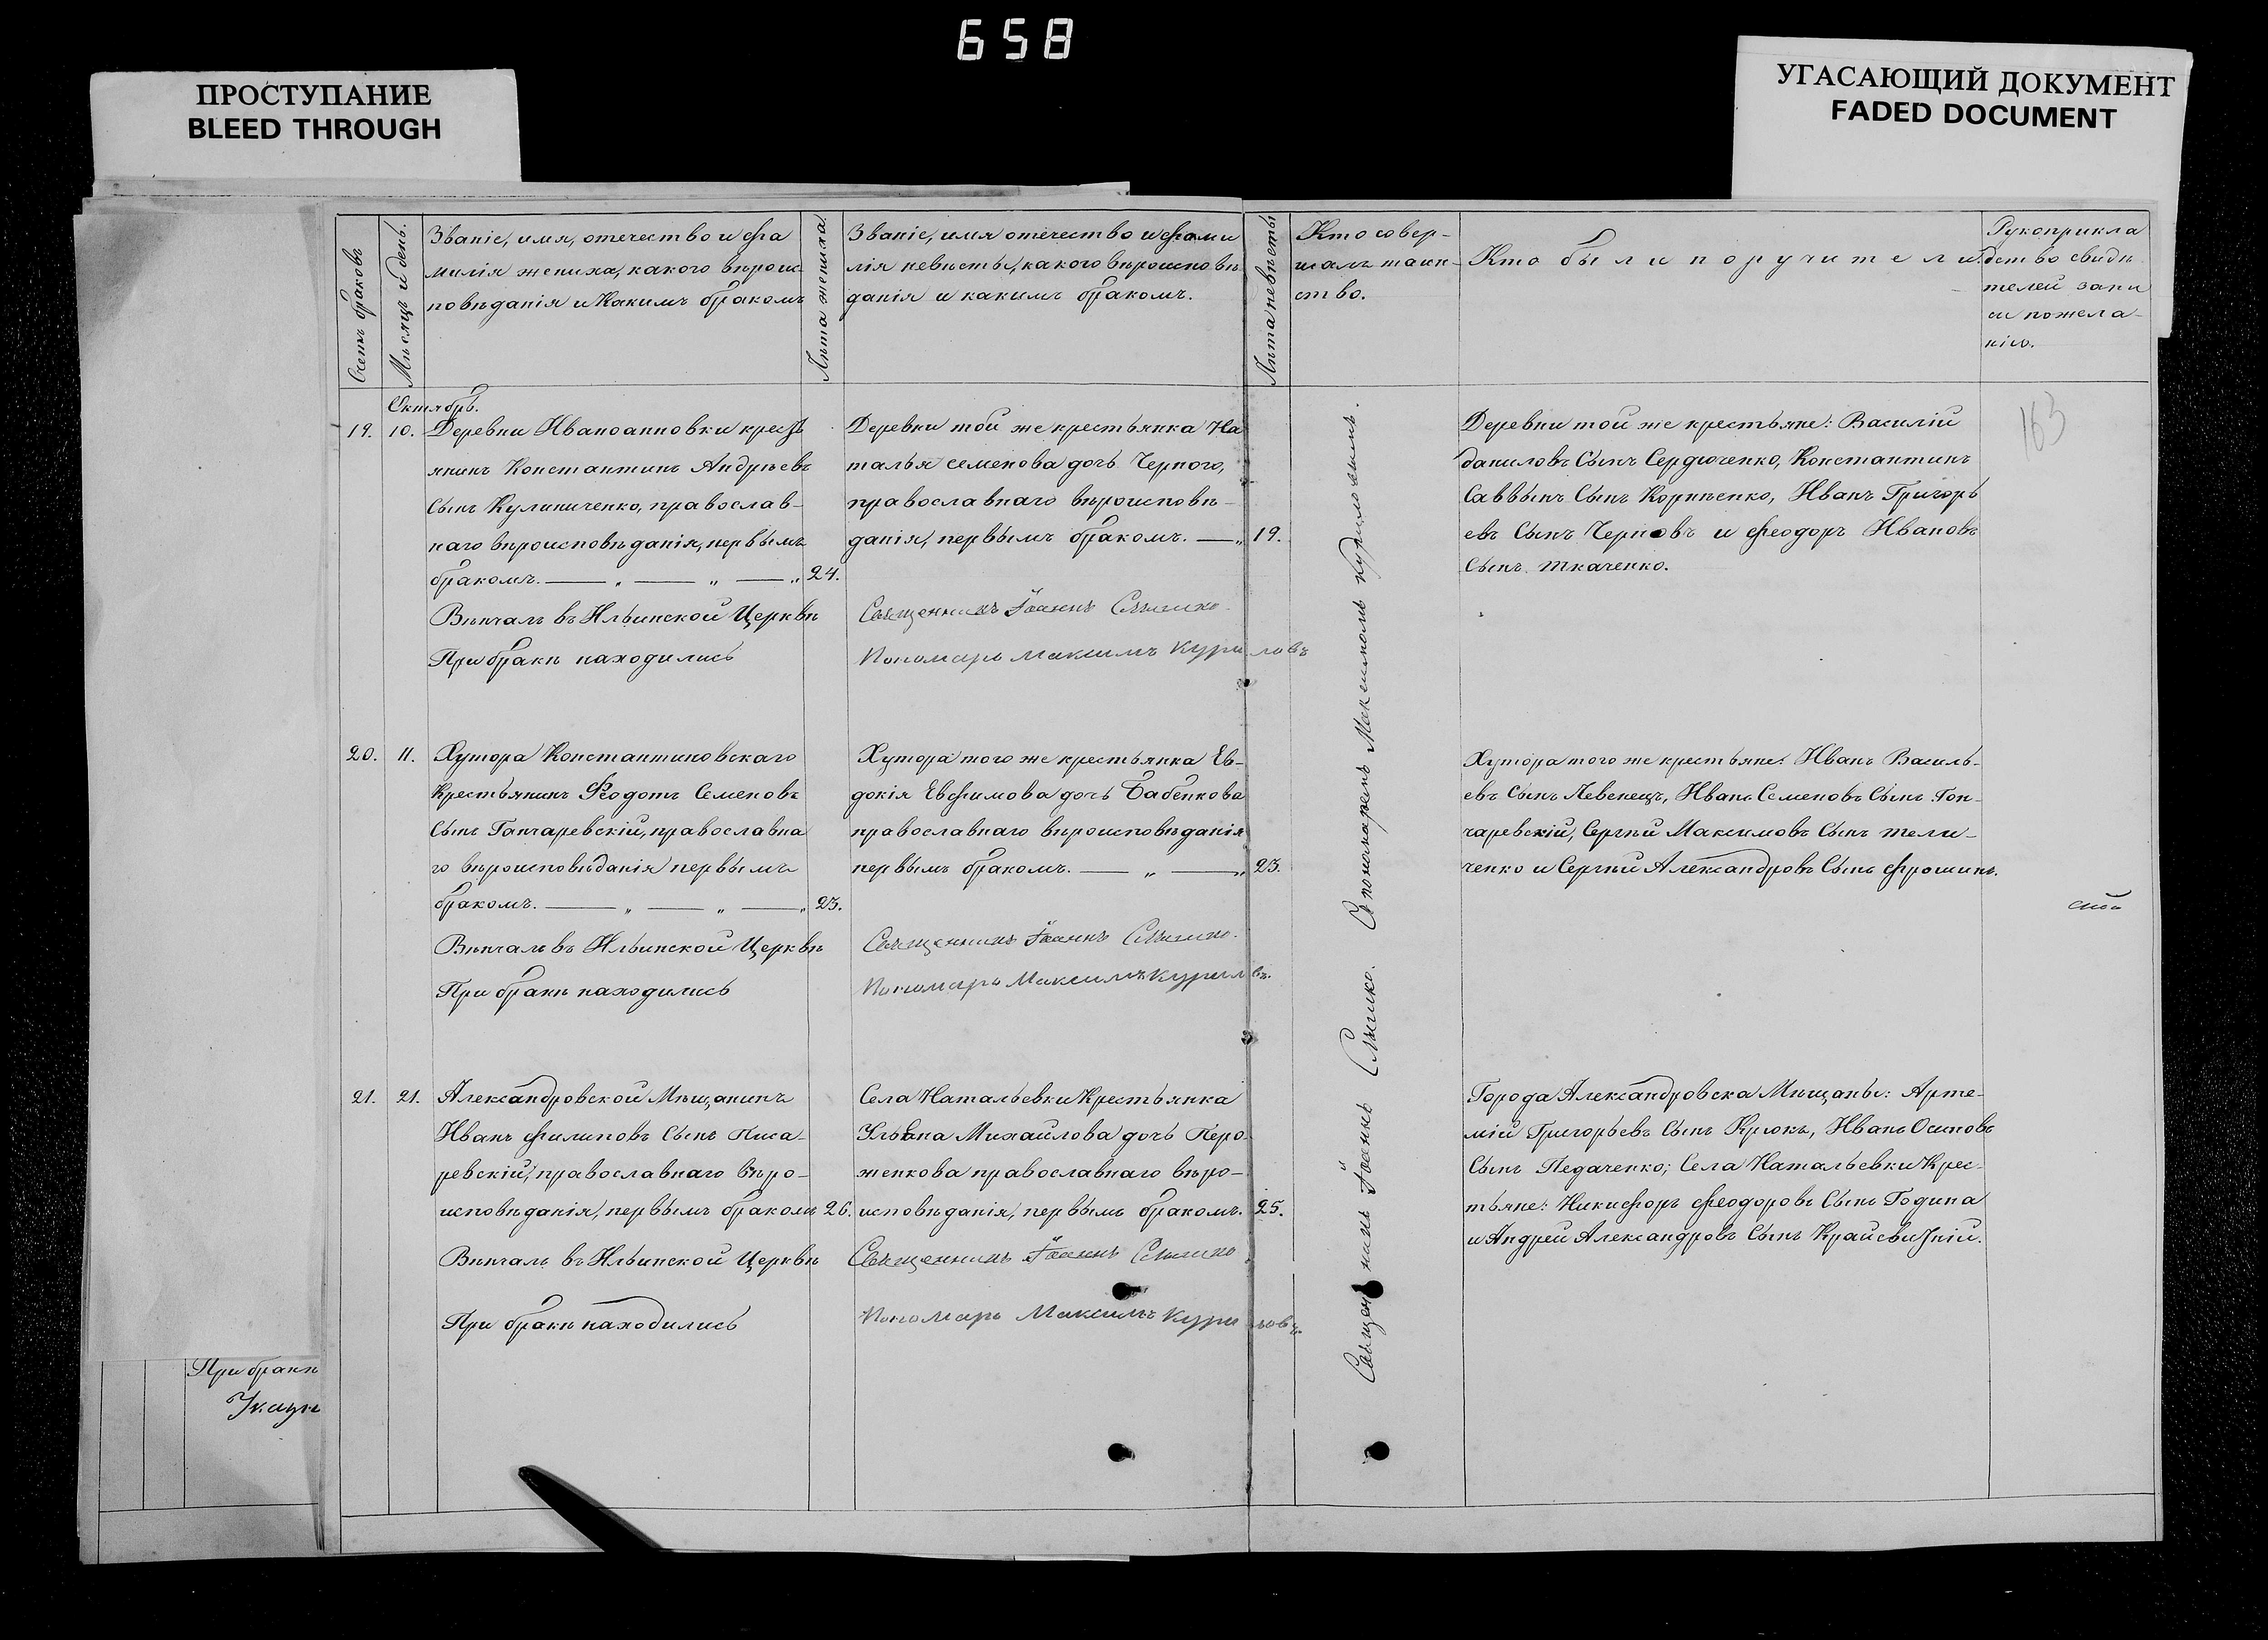 658
ПРОСТУПАНИЕ
BLEED THROUGH
УГАСАЮЩИЙ ДОКУМЕНТ
FADED DOCUMENT
Счетъ браковъ
Мѣсяцъ и день.
Званіе, имя, отечество и фа
милія жениха, какого вѣроис-
повѣданія и Какимъ бракомъ
Лѣта жениха.
Званіе, имя отечество и фами
лія невѣсты, какого вѣроисповѣ
данія и какимъ бракомъ.
Лѣта невѣсты
Кто совер-
шалъ таин-
ство.
Кто были поручители.
Рукоприкла
дство свидѣ
телей запи
си по жела-
нію.
Октябрь.
19. 10. Деревни Иваноанновки кресть
янинъ Константинъ Андреевъ
Сынъ Кулиниченко, православ-
наго вѣроисповѣданія, первымъ
бракомъ. — „ — „ — „ 24.
Вѣнчалъ въ Ильинской Церквѣ
При бракѣ находились
Деревни той же крестьянка На
талья Семенова дочь Черного,
православнаго вѣроисповѣ-
данія, первымъ бракомъ. — „ 19.
Священникъ Іоаннъ
Пономарь Максимъ Куриловъ
Деревни той же крестьяне: Василій
даниловъ Сынъ Сердюченко, Константинъ
Саввынъ Сынъ Корніенко, Иванъ Григорь
евъ Сынъ Черновъ и Феодоръ Ивановъ
Сынъ Ткаченко.
163
20. 11. Хутора Константиновскаго
Крестьянинъ Феодотъ Семеновъ
Сынъ Ганчаревскій, православна
го вѣроисповѣданія первымъ
бракомъ. — „ — „ — „ 23.
Вѣнчалъ въ Ильинской Церквѣ
При бракѣ находились
Хутора того же крестьянка Ев-
докія Евфимова дочь Бабенкова
православнаго вѣроисповѣданія
первымъ бракомъ. — „ — „ 23.
Священникъ Іоаннъ
Пономарь Максимъ Куриловъ.
Хутора того же крестьяне: Иванъ Василь-
евъ Сынъ Левенецъ, Иванъ Семеновъ Сынъ Гон-
чаревскій, Сергѣй Максимовъ Сынъ Тели-
ченко и Сергѣй Александровъ Сынъ Фрошинъ.
21. 21. Александровской Мѣщанинъ
Иванъ Филиповъ Сынъ Писа-
ревскій, православнаго вѣро-
исповѣданія, первымъ бракомъ 26.
Вѣнчалъ въ Ильинской Церквѣ
При бракѣ находились
Села Натальевки Крестьянка
Ульяна Михайлова дочь Перо-
женкова православнаго вѣро-
исповѣданія, первымъ бракомъ. 25.
Священникъ Іоаннъ
Пономарь Максимъ Куриловъ.
Города Александровска Мѣщаны: Арте-
мій Григорьевъ Сынъ Крюкъ, Иванъ Осиповъ
Сынъ Педаченко; Села Натальевки Крес-
тьяне: Никифоръ Феодоровъ Сынъ Година
и Андрей Александровъ Сынъ
Священникъ Іоаннъ Съ пономаремъ Максимомъ Куриловымъ.
При бракѣ